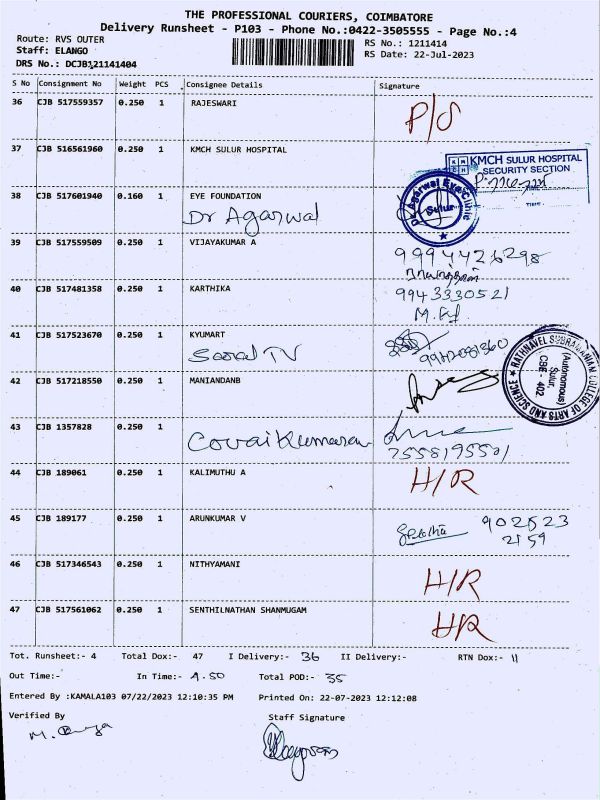 THE PROFESSIONAL COURIERS, COIMBATORE
Delivery Runsheet - P103 - Phone No.:0422-3505555 - Page No.:4
Route: RVS OUTER RS No.: 1211414
Staff: ELANGO RS Date: 22-Jul-2023
DRS No.: DCJB121141404
S No Consignment No Weight PCS Consignee Details Signature
36 CJB 517559357 0.250 1 RAJESWARI
P/S
37 CJB 516561960 0.250 1 KMCH SULUR HOSPITAL
KMCH SULUR HOSPITAL
SECURITY SECTION
38 CJB 517601940 0.160 1 EYE FOUNDATION
Dr Agarwal
Dr Agarwal Eye Clinic
Sulur
39 CJB 517559509 0.250 1 VIJAYAKUMAR A
9994426298
40 CJB 517481358 0.250 1 KARTHIKA
9943330521
41 CJB 517523670 0.250 1 KYUMART
Saral TV
RATHNAVEL SUBRAMANIAM COLLEGE OF ARTS AND SCIENCE
(Autonomous)
Sulur,
CBE - 402
42 CJB 517218550 0.250 1 MANIANDANB
43 CJB 1357828 0.250 1
Covai Kumaran
7558195501
44 CJB 189061 0.250 1 KALIMUTHU A
H/R
45 CJB 189177 0.250 1 ARUNKUMAR V
902523
2159
46 CJB 517346543 0.250 1 NITHYAMANI
H/R
47 CJB 517561062 0.250 1 SENTHILNATHAN SHANMUGAM
HR
Tot. Runsheet:- 4 Total Dox:- 47 I Delivery:- 36 II Delivery:- RTN Dox:- 11
Out Time:- In Time:- 4.50 Total POD:- 35
Entered By :KAMALA103 07/22/2023 12:10:35 PM Printed On: 22-07-2023 12:12:08
Verified By Staff Signature